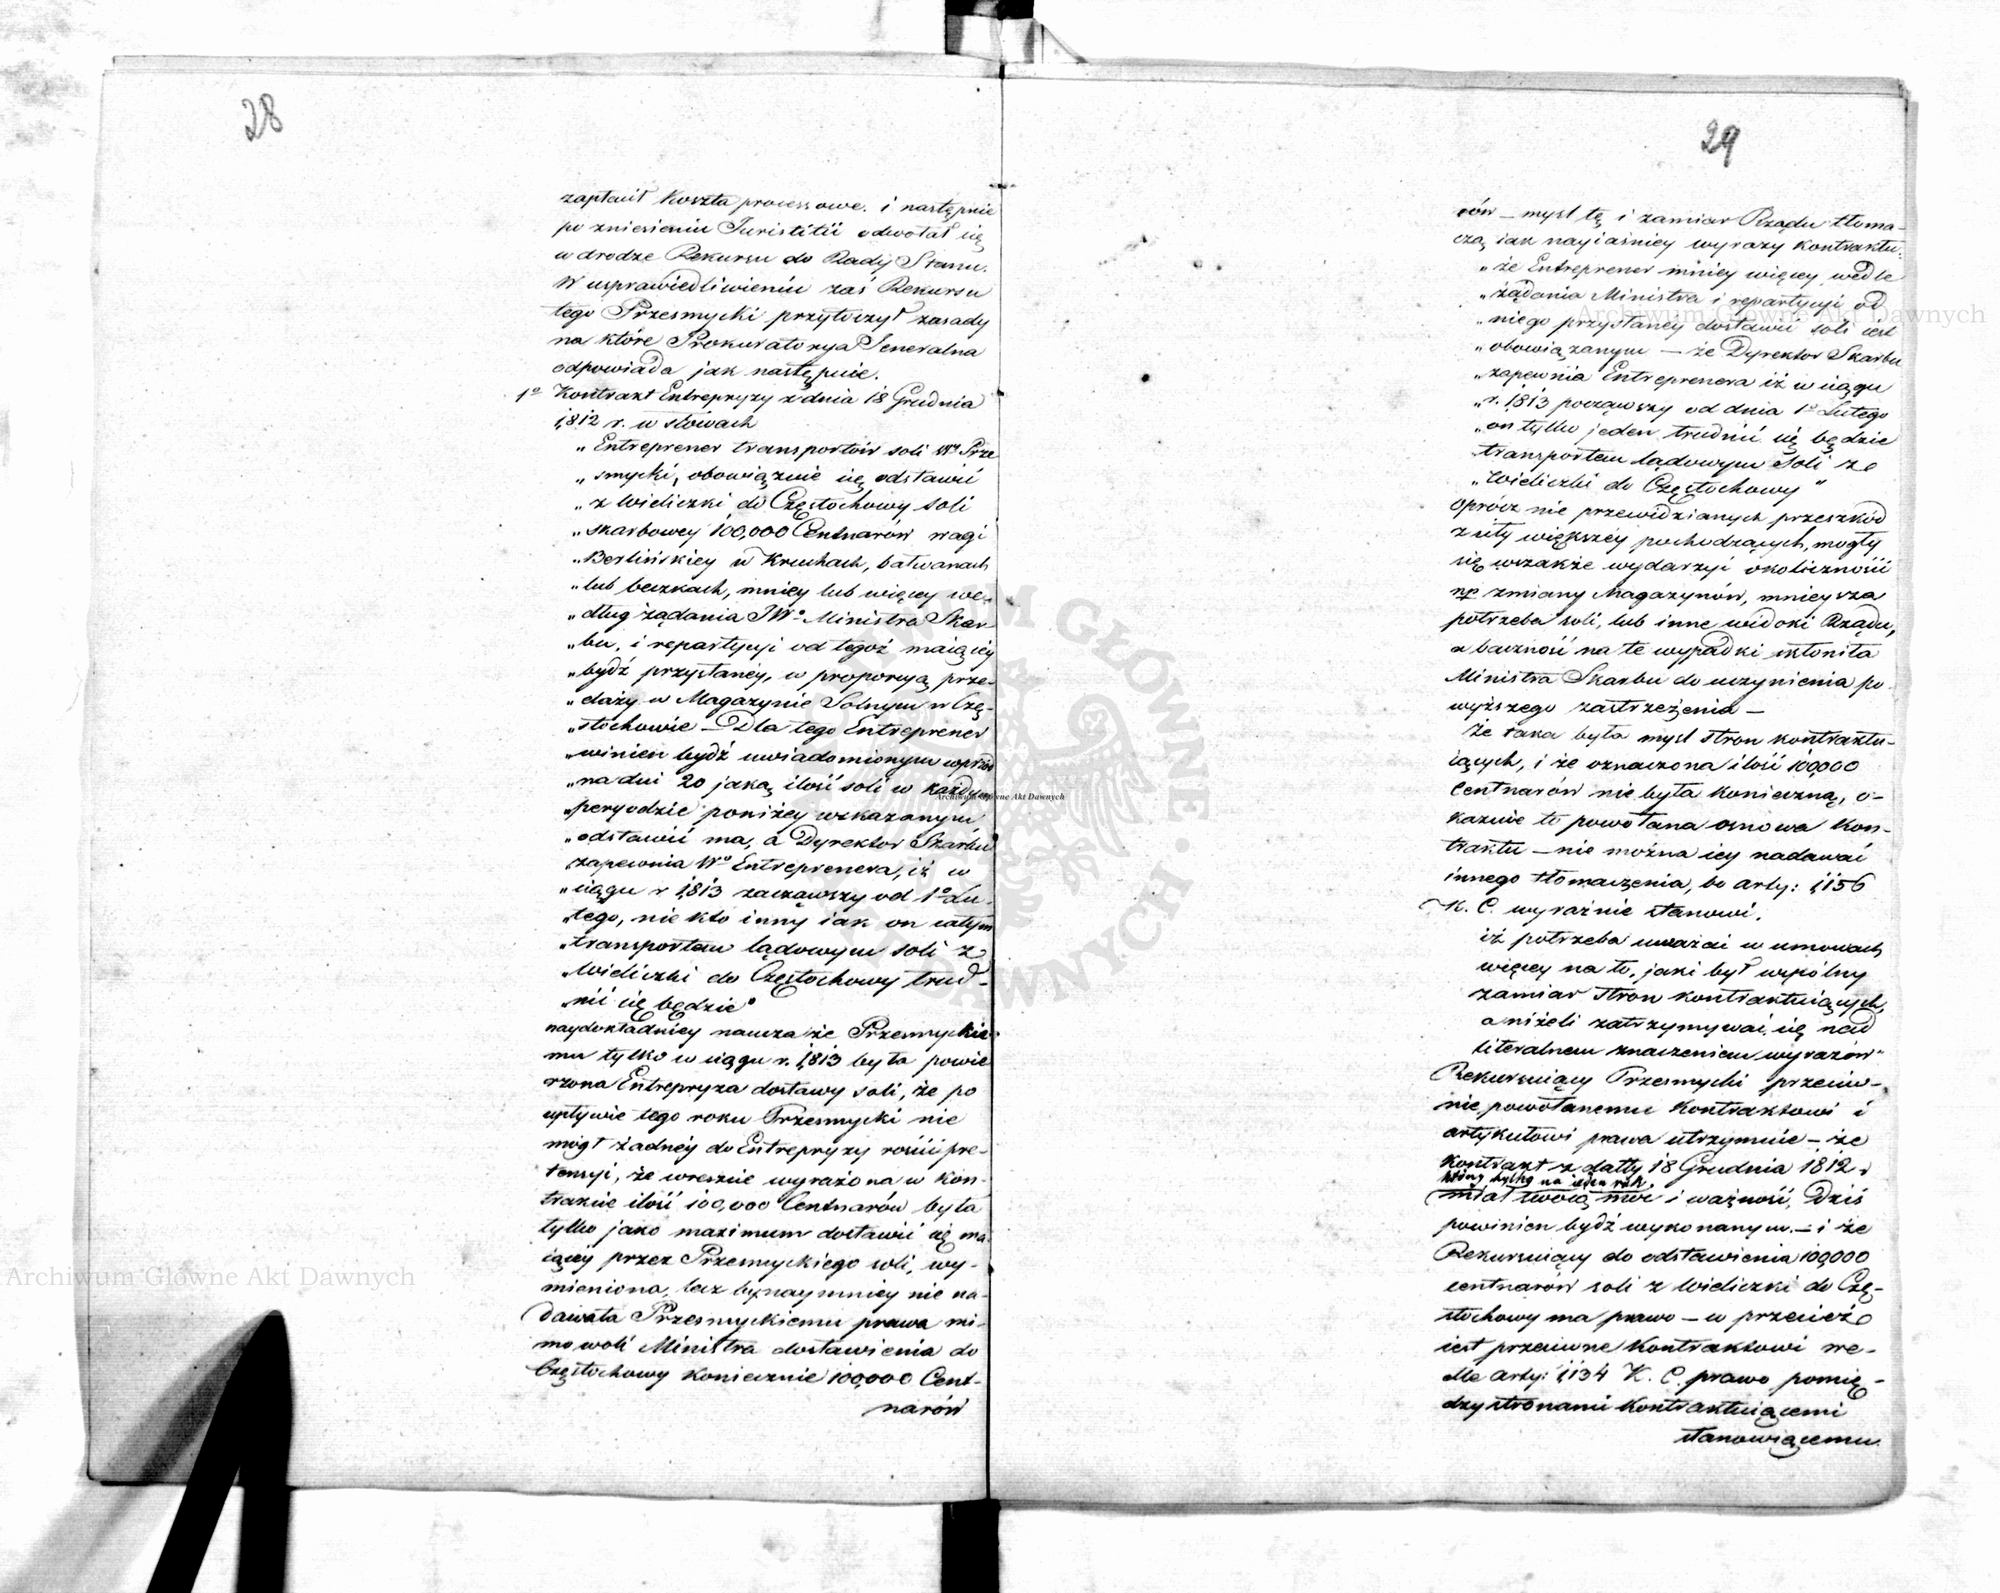 28
zapłacił Koszta processowe. i następnie
po zniesieniu Juristitii odwołał się
w drodze Rekursu do Rady Stanu.
W usprawiedliwieniu zaś Rekursu
tego Przesmycki przytoczył zasady
na które Prokuratorya Jeneralna
odpowiada jak następuie.
1º Kontrakt Entrepryzy z dnia 18 Grudnia
1812 r. w słowach
„Entreprener transportów soli Wy Prze
„smycki, obowiązuie się odstawić
„z Wieliczki do Częstochowy soli
„skarbowey 100,000 Centnarów wagi
„Berlińskiey w Kruchach, bałwanach
„lub beczkach, mniey lub więcey we-
„dług żądania JWº Ministra Skar
„bu, i repartycyi od tegoż maiącey
„bydź przysłaney, w proporcyą prze-
„daży w Magazynie Solnym w Czę-
„stochowie — Dla tego Entreprener
„winien bydź uwiadomionym wprzód
„na dni 20 jaką ilość soli w każdym
„peryodzie poniżey wskazanym
„odstawić ma, a Dyrektor Skarbu
„zapewnia Wº Entreprenera, iż w
„ciągu r 1813 zacząwszy od 1º Lu-
„tego, nie kto inny iak on całym
„transportem lądowym soli z
„Wieliczki do Częstochowy trud-
„nić się będzie"
naydokładniey naucza że Przesmyckie
mu tylko w ciągu r. 1813 była powie
rzona Entrepryza dostawy soli, że po
upływie tego roku Przesmycki nie
mógł żadney do Entrepryzy rościć pre-
tensyi, że wreszcie wyrażona w Kon-
trakcie ilość 100,000 Centnarów była
tylko jako maximum dostawić się ma-
iącey przez Przesmyckiego soli, wy-
mieniona, lecz bynaymniey nie na-
dawała Przesmyckiemu prawa mi-
mo woli Ministra dostawienia do
Częstochowy koniecznie 100,000 Cent-
narów
29
rów — myśl tę i zamiar Rządu tłoma-
czą iak nayiaśniey wyrazy kontraktu:
„że Entreprener mniey więcey wedle
„żądania Ministra i repartycyi od
„niego przysłaney dostawić soli iest
„obowiązanym — że Dyrektor Skarbu
„zapewnia Entreprenera iż w ciągu
„r. 1813 począwszy od dnia 1º Lutego
„on tylko jeden trudnić się będzie
„transportem lądowym Soli ze
„Wieliczki do Częstochowy"
Oprócz nie przewidzianych przeszkód
z siły większey pochodzących, mogły
się wszakże wydarzyć okoliczności
np zmiany Magazynów, mnieysza
potrzeba soli, lub inne widoki Rządu,
a baczność na te wypadki skłoniła
Ministra Skarbu do uczynienia po-
wyższego zastrzeżenia —
Że taka była myśl stron kontraktu-
iących, i że oznaczona ilość 100,000
Centnarów nie była konieczną, o-
kazuie to powołana osnowa Kon-
traktu — nie można iey nadawać
innego tłomaczenia, bo arty: 1156
K. C. wyraźnie stanowi.
iż potrzeba uważać w umowach
więcey na to, jaki był wspólny
zamiar stron kontraktuiących,
aniżeli zatrzymywać się nad
literalnem znaczeniem wyrazów"
Rekursuiący Przesmycki przeciw-
nie powołanemu Kontraktowi i
artykułowi prawa utrzymuie — że
Kontrakt z datty 18 Grudnia 1812 r
który tylko na ieden rok,
miał swoią moc i ważność, Dziś
powinien bydź wykonanym. — i że
Rekursuiący do odstawienia 100,000
centnarów soli z Wieliczki do Czę-
stochowy ma prawo — co przecież
iest przeciwne Kontraktowi we-
dle arty: 1134 K. C. prawo pomię-
dzy stronami kontraktuiącemi
stanowiącemu
Archiwum Główne Akt Dawnych
Archiwum Główne Akt Dawnych
Archiwum Główne Akt Dawnych
ARCHIWUM GŁÓWNE AKT DAWNYCH